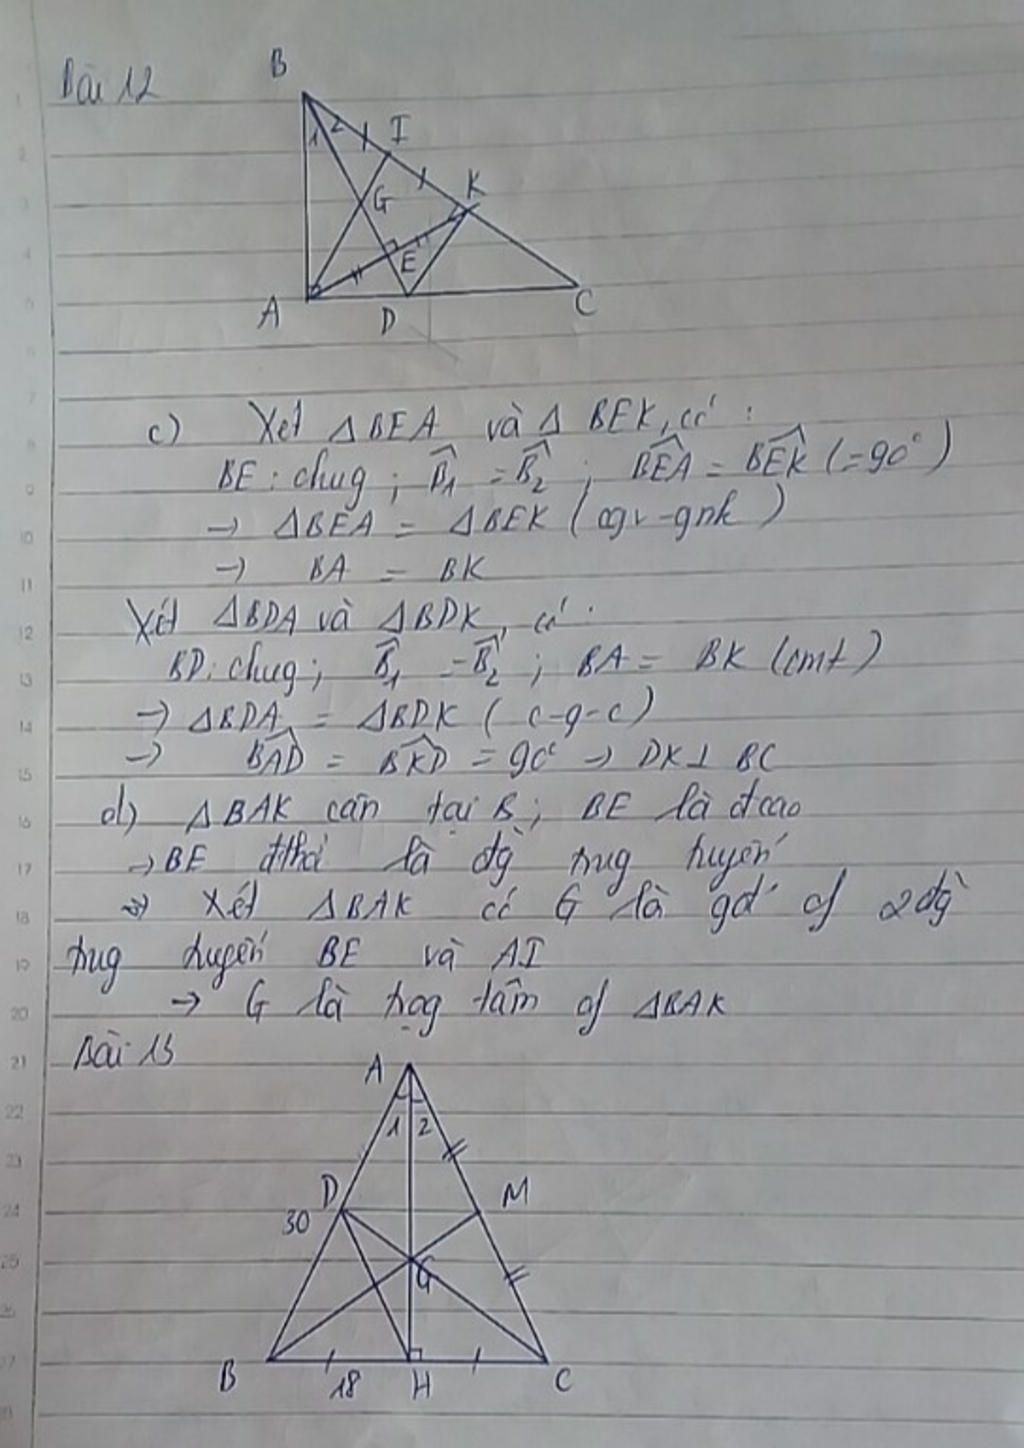 Bài 12
B
1 2
I
K
G
E
A
D
C
c) Xét ΔBEA và Δ BEK, có :
BE : chug ; B̂1 = B̂2 ; BÊA = BÊK (= 90°)
→ ΔBEA = ΔBEK ( cgv - gnk )
→ BA = BK
Xét ΔBDA và ΔBDK, có :
BD : chug ; B̂1 = B̂2 ; BA = BK (cmt)
→ ΔBDA = ΔBDK ( c-g-c )
→ BÂD = BK̂D = 90° → DK ⊥ BC
d) ΔBAK cân tại B ; BE là đcao
→ BE đthời là đg̀ trug tuyến
Xét ΔBAK có G là gđ' of 2 đg̀
trug tuyến BE và AI
→ G là trọg tâm of ΔBAK
Bài 13
A
1 2
D
M
30
G
B
18
H
C